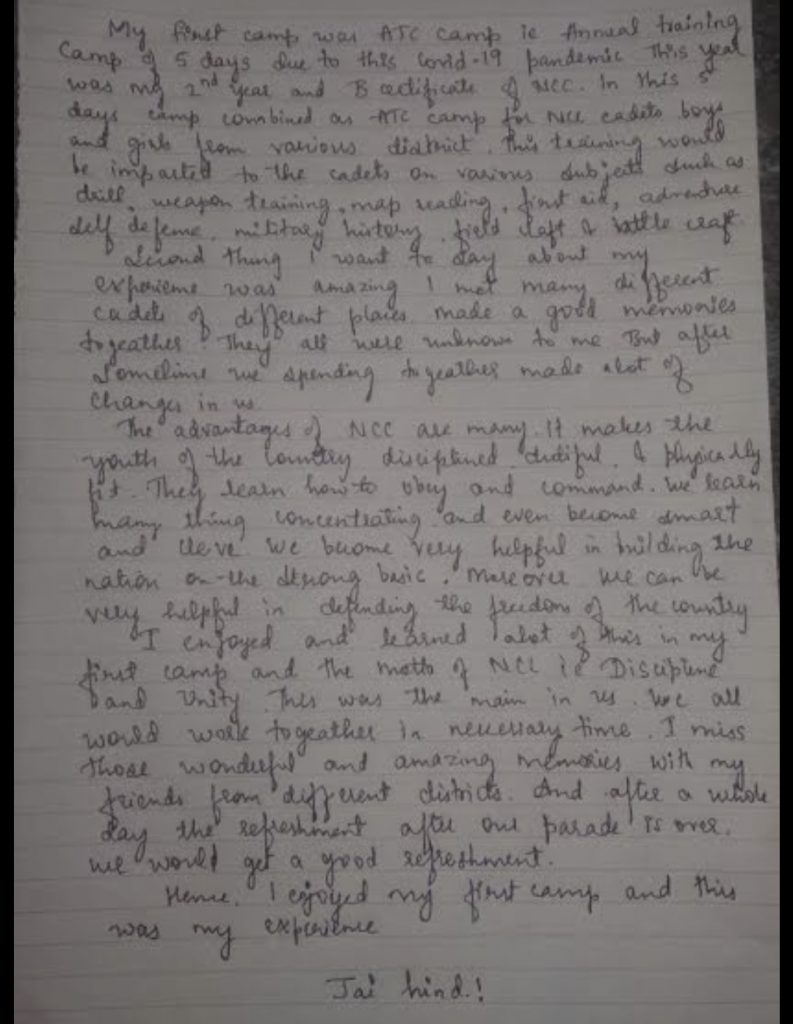 My first camp was ATC camp ie Annual training
Camp of 5 days due to this Covid-19 pandemic This year
was my 2nd year and B certificate of NCC. In this 5
days camp combined as ATC camp for NCC cadets boys
and girls from various district. This training would
be imparted to the cadets on various subjects such as
drill, weapon training, map reading, first aid, adventure
self defence, military history, field craft & battle craft
Second thing I want to say about my
experience was amazing I met many different
cadets of different places made a good memories
togeather. They all were unknown to me But after
Sometime we spending togeather made alot of
Changes in us
The advantages of NCC are many. It makes the
youth of the country disciplined dutiful & physically
fit. They learn how to obey and command. We learn
many thing concentrating and even become smart
and We become very helpful in building the
nation on the strong basic. Moreover we can be
very helpful in defending the freedom of the country
I enjoyed and learned alot of this in my
first camp and the motto of NCC ie Discipline
and Unity. This was the main in us. We all
would work togeather in necessary time. I miss
those wonderful and amazing memories with my
friends from different districts. And after a whole
day the refreshment after our parade is over.
we would get a good refreshment.
Hence, I enjoyed my first camp and this
was my experience
Jai hind.!